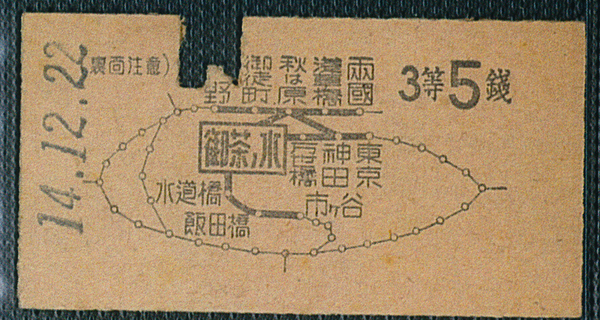 14.12.22
裏面注意)
3等5錢
兩國
淺草橋
秋は原
御徒町
野
御茶ノ水
東京
神田
橋
水道橋
市ヶ谷
飯田橋